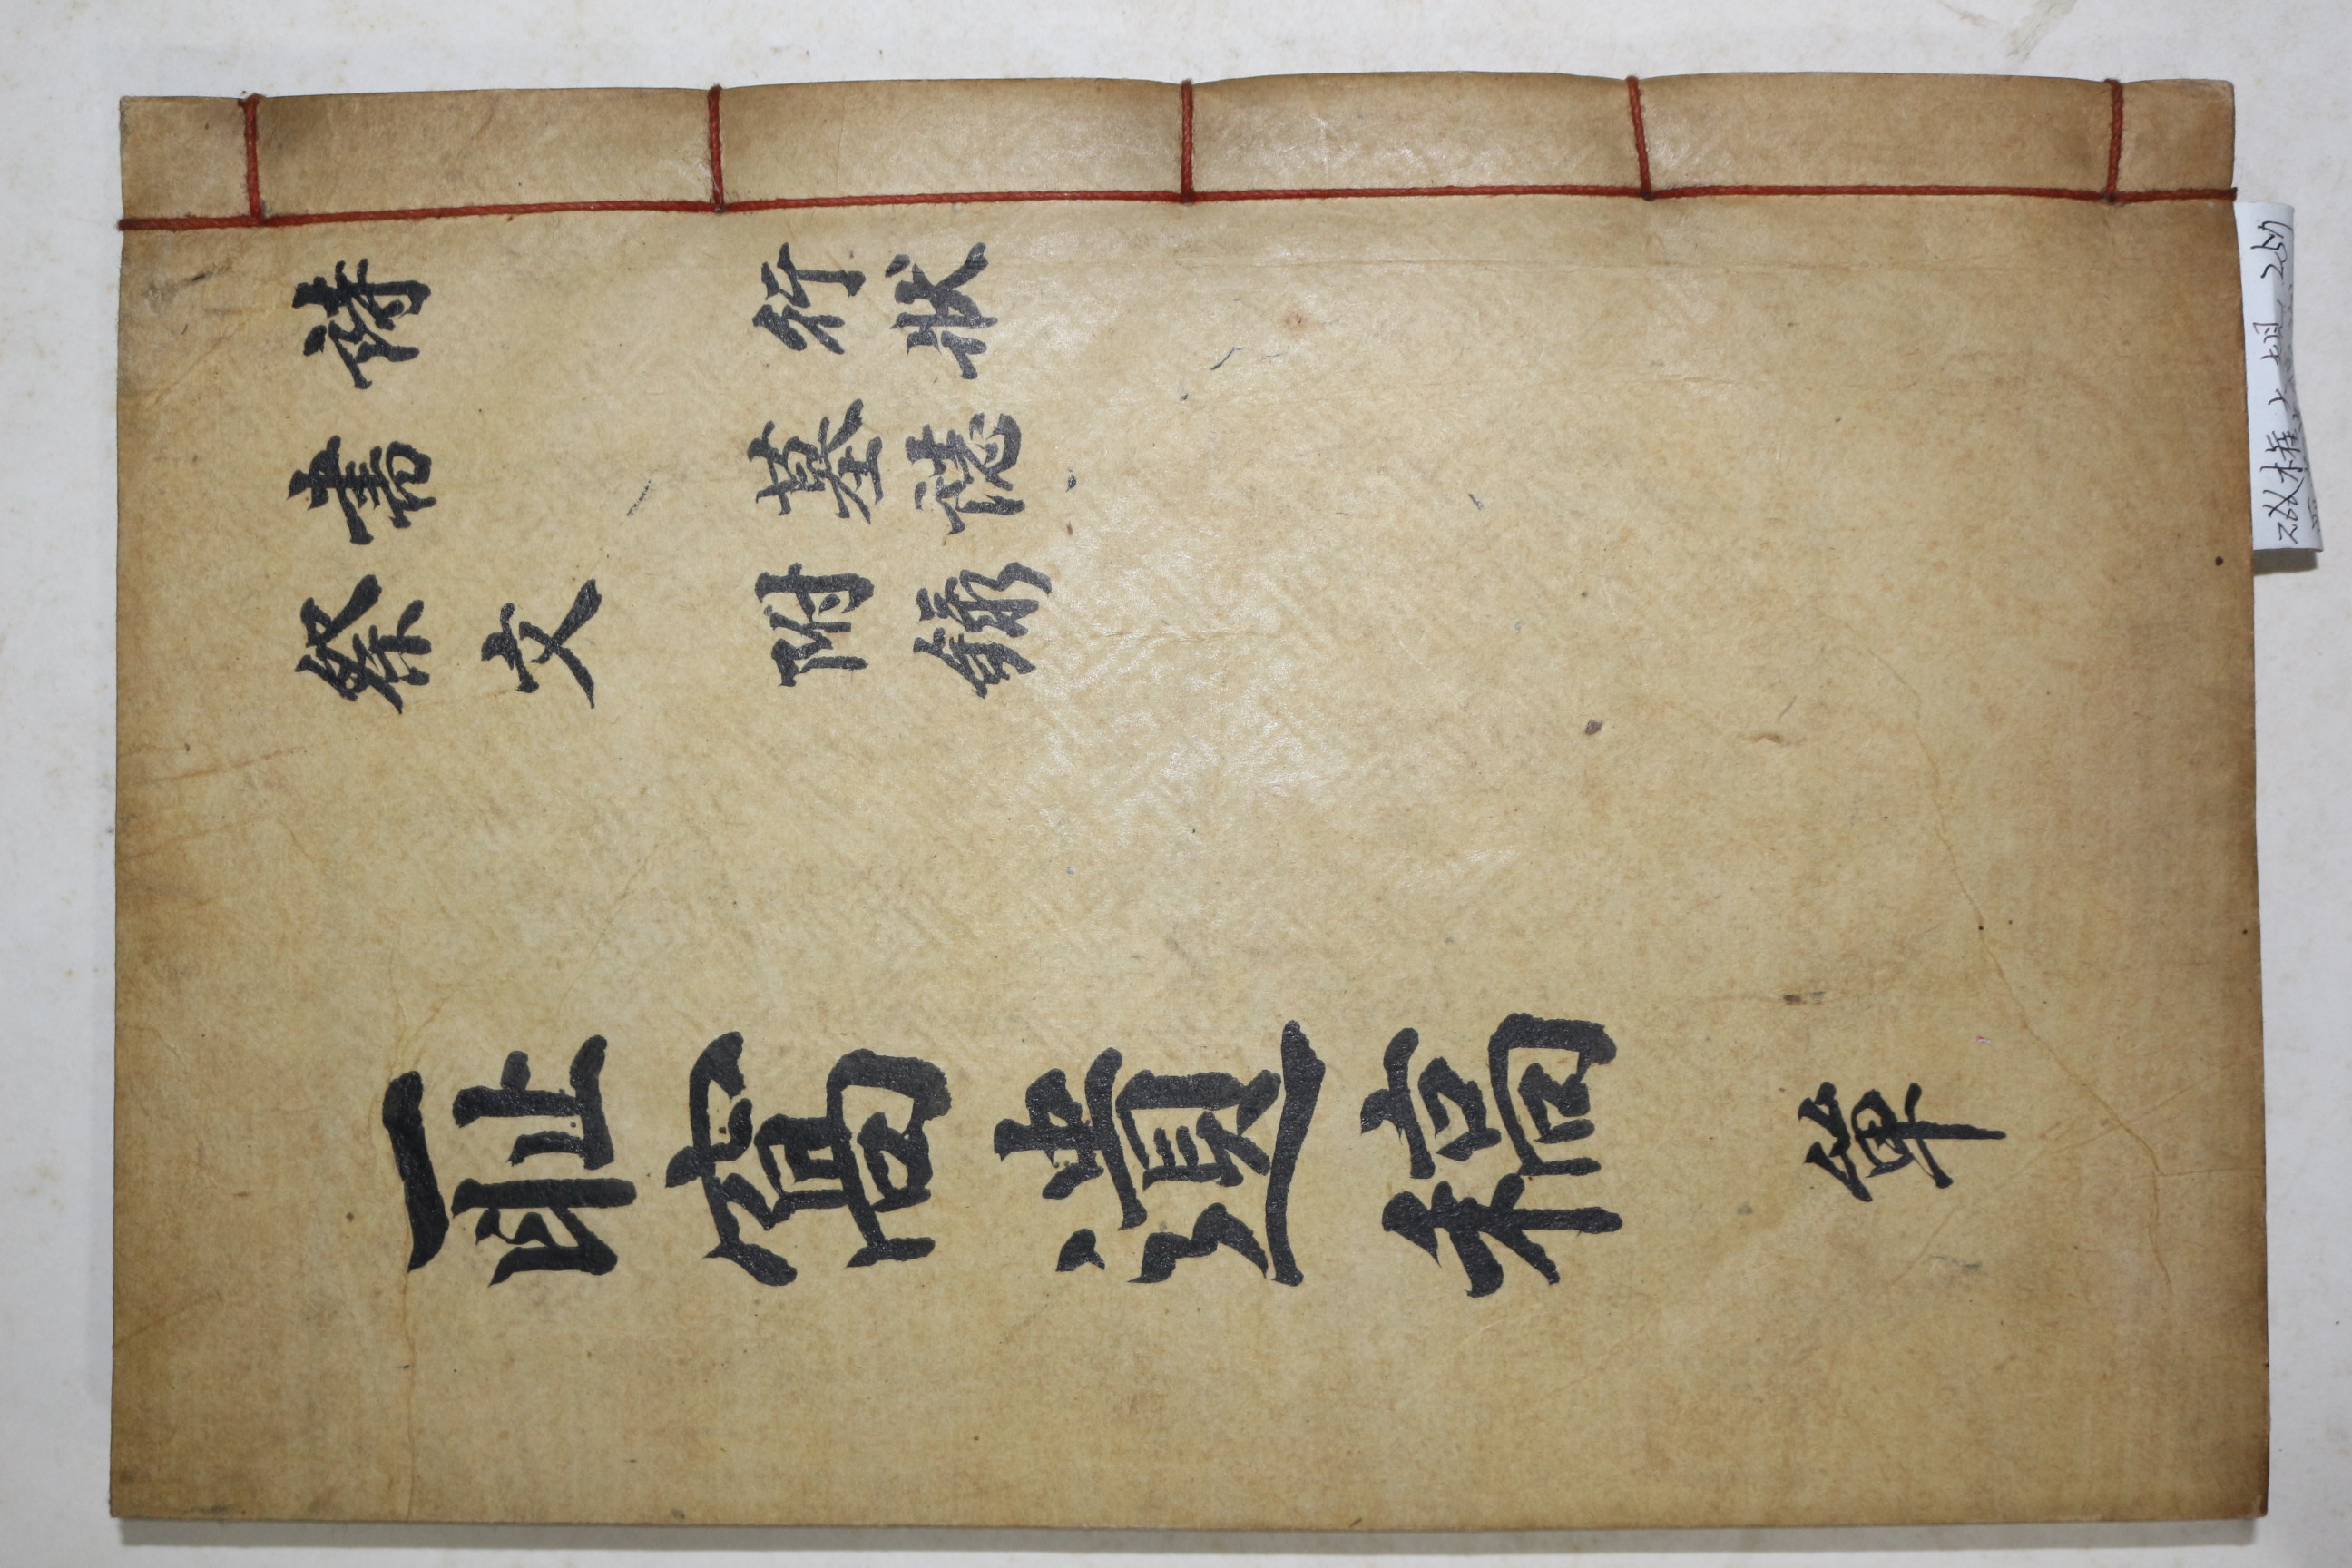 詩 行狀
書 墓誌
祭文 附錄
恥窩遺稿 單